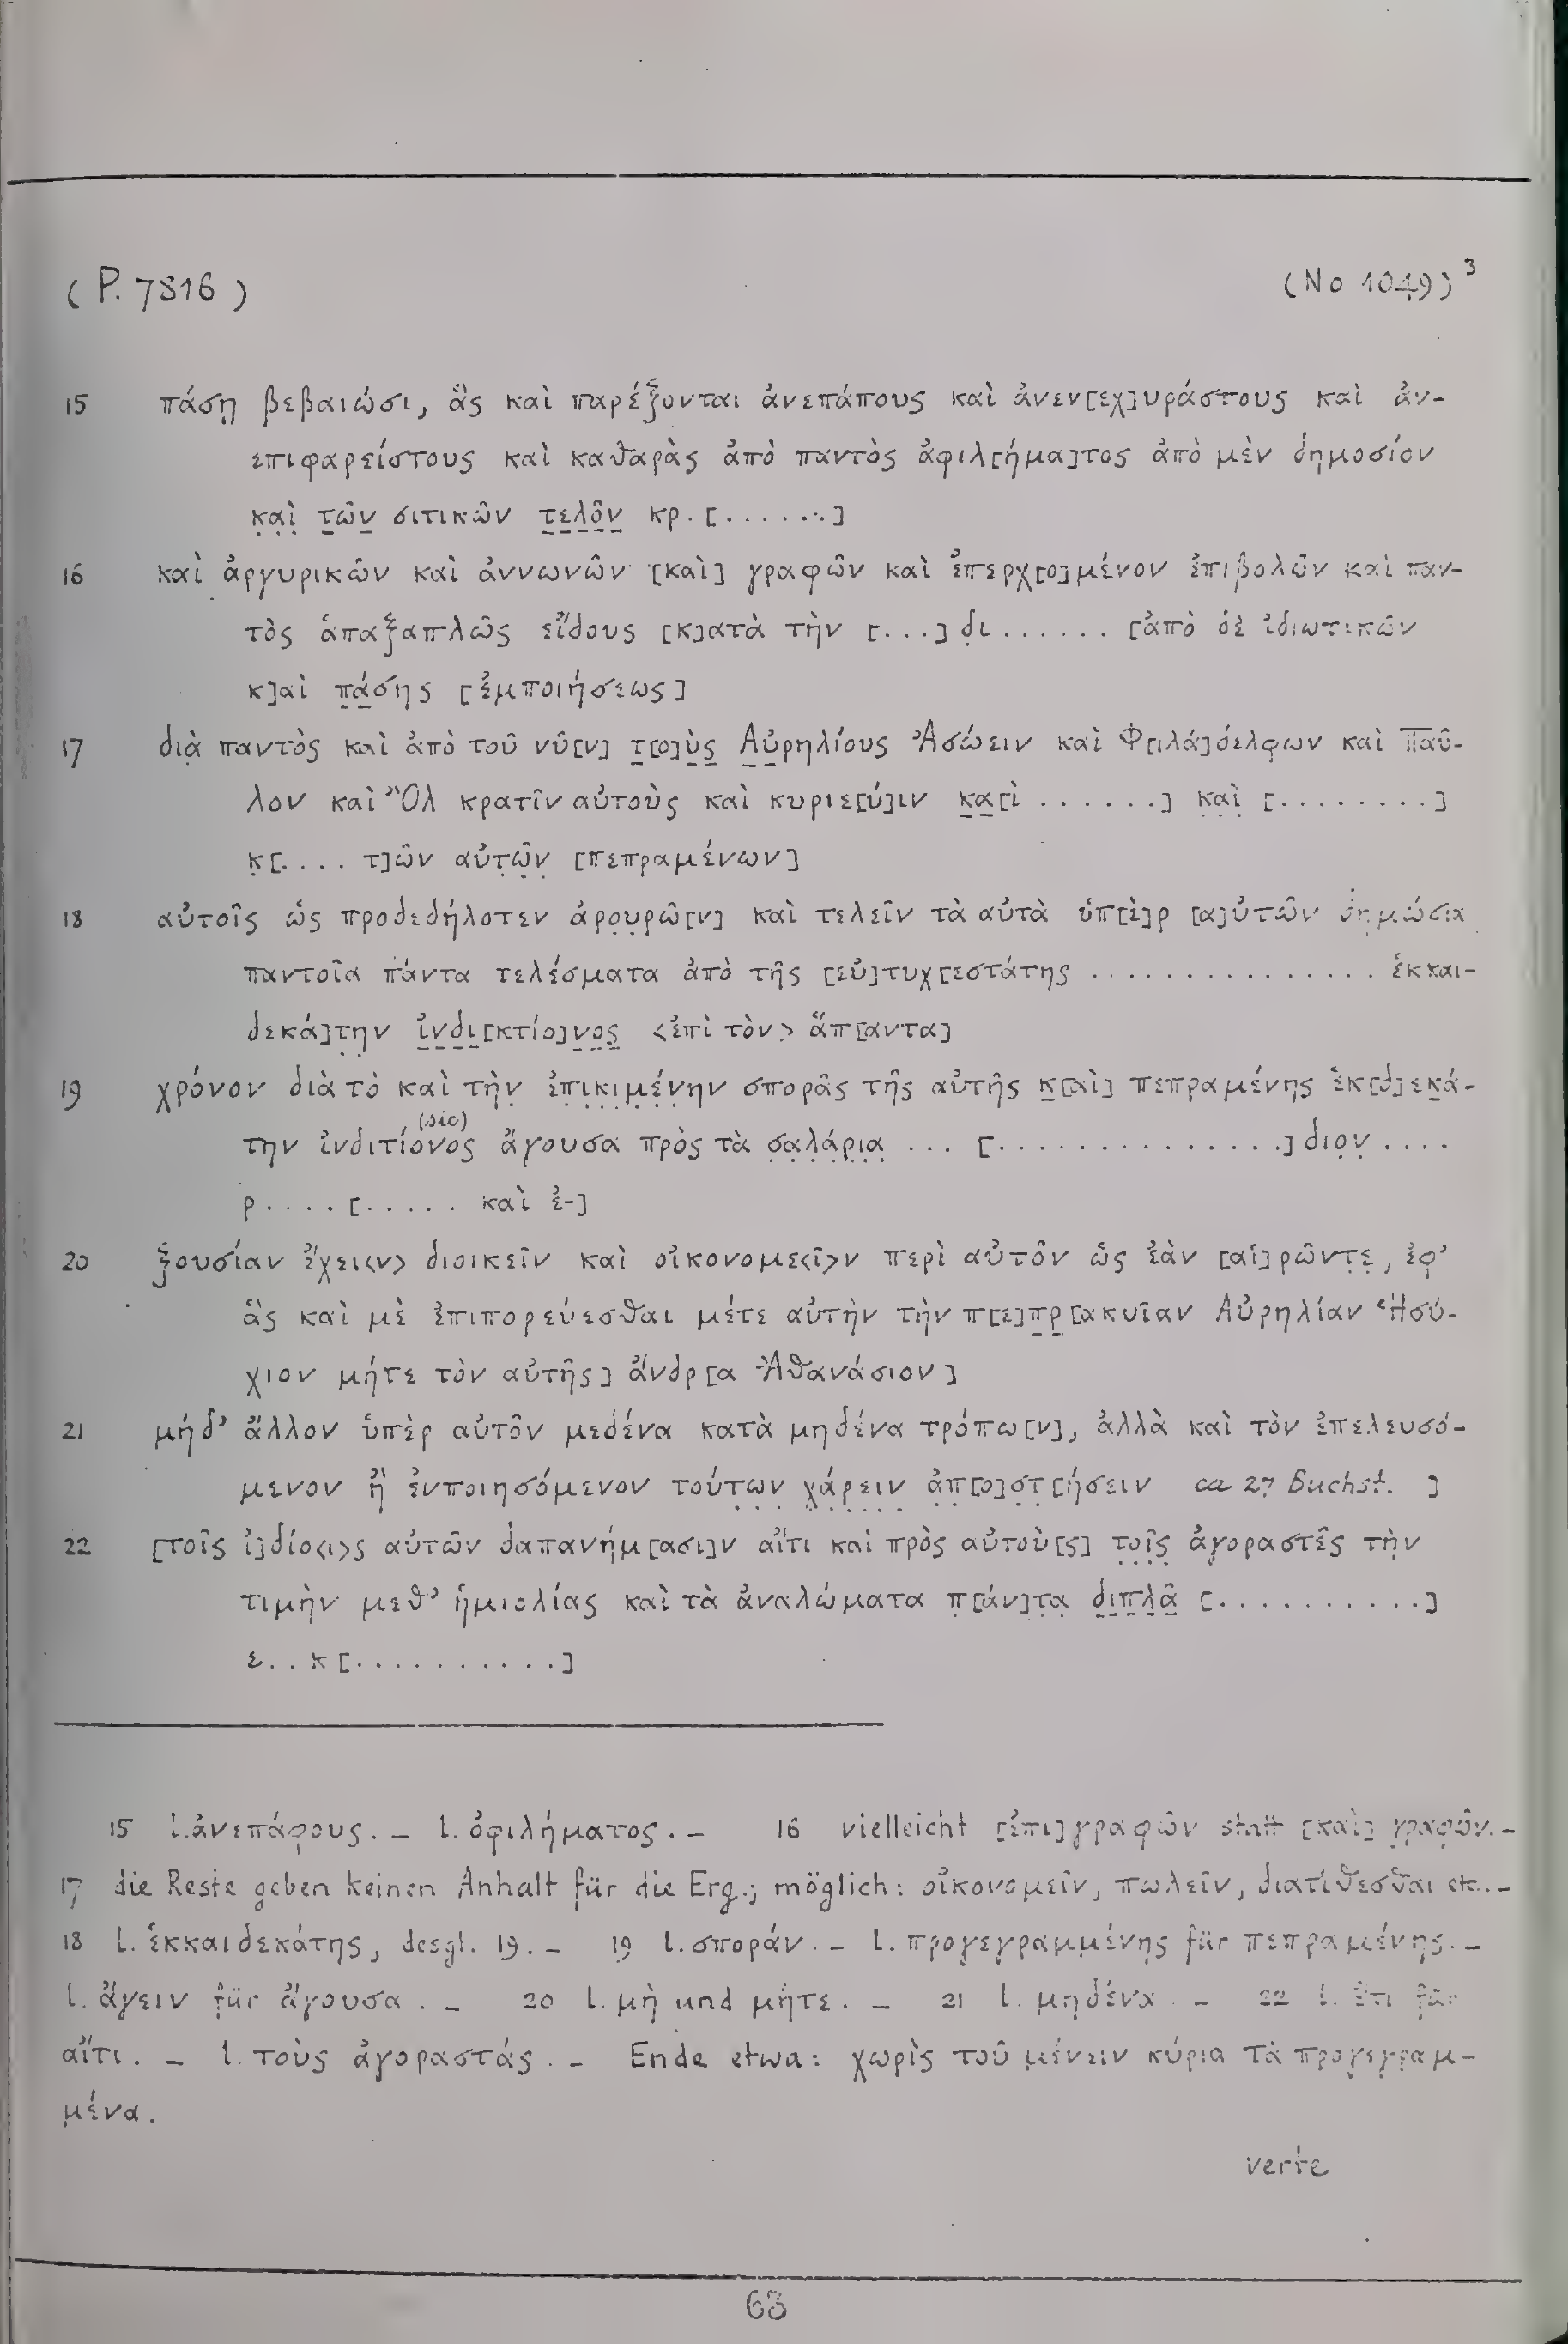 (P. 7816) (No 1049)³
15 πάσῃ βεβαιώσι, ἃς καὶ παρέξονται ἀνεπάπους καὶ ἀνεν[εχ]υράστους καὶ ἀν-
επιφαρείστους καὶ καθαρὰς ἀπὸ παντὸς ἀφιλ[ήμα]τος ἀπὸ μὲν δημοσίον
κ̣α̣ὶ̣ τ̣ῶ̣ν̣ σιτικῶν τ̣ε̣λ̣ο̣͂ν̣ κρ. [. . . . . . .]
16 καὶ ἀργυρικῶν καὶ ἀννωνῶν [καὶ] γραφῶν καὶ ἐπερχ[ο]μένον ἐπιβολῶν καὶ παν-
τὸς ἁπαξαπλῶς εἴδους [κ]ατὰ τὴν [. . .] δ̣ι . . . . . . [ἀπὸ δὲ ἰδιωτικῶν
κ]αὶ π̣ά̣σης [ἐμποιήσεως]
17 διὰ παντὸς καὶ ἀπὸ τοῦ νῦ[ν] τ̣[ο]ὺ̣ς̣ Α̣ὐ̣ρηλίους Ἀσώειν καὶ Φ[ιλά]δελφων καὶ Παῦ-
λον καὶ Ὂλ κρατῖν αὐτοὺς καὶ κυριε[ύ]ιν κ̣α̣[ὶ . . . . . .] κ̣α̣ὶ̣ [. . . . . . . .]
κ̣[. . . . τ]ῶν αὐτ̣ῶ̣ν̣ [πεπραμένων]
18 αὐτοῖς ὡς προδεδήλοτεν ἀρο̣υ̣ρῶ[ν] καὶ τελεῖν τὰ αὐτὰ ὑπ[ὲ]ρ [α]ὐτῶν δημώσια
παντοῖα πάντα τελέσματα ἀπὸ τῆς [εὐ]τυχ[εστάτης . . . . . . . . . . . . . . . ἑκκαι-
δεκά]τ̣η̣ν ἰ̣ν̣δ̣ι̣[κτίο]ν̣ο̣ς̣ <ἐπὶ τὸν> ἅπ[αντα]
19 χρόνον διὰ τὸ καὶ τὴν̣ ἐπ̣ι̣κ̣ι̣μ̣έ̣ν̣ην σπορᾶς τῆς αὐτῆς κ̣[αὶ] πεπραμένης ἑκ[δ]εκ̣ά-
την ἰνδιτίονος (sic) ἄγουσα πρὸς τὰ σ̣α̣λ̣ά̣ρ̣ι̣α̣ . . . [. . . . . . . . . . . . . . .] διο̣ν̣ . . . .
ρ . . . . [. . . . . καὶ ἐ-]
20 ξουσίαν ἔχει<ν> διοικεῖν καὶ οἰκονομε<ῖ>ν περὶ αὐτôν ὡς ἐὰν [αἱ]ρῶντ̣ε̣, ἐφ’
ἃς καὶ μὲ ἐπιπορεύεσθαι μέτε αὐτὴν τὴν π[ε]π̣ρ̣[ακυῖαν Αὐρηλίαν Ἡσύ-
χιον μήτε τὸν αὐτῆς] ἄνδρ[α Ἀθανάσιον]
21 μήδ’ ἄλλον ὑπὲρ αὐτôν μεδένα κατὰ μηδένα τρόπω[ν], ἀλλὰ καὶ τὸν ἐπελευσό-
μενον ἢ ἐνποιησόμενον τούτ̣ω̣ν̣ χ̣ά̣ρ̣ε̣ι̣ν̣ ἀ̣π̣[ο]σ̣τ̣[ήσειν ca 27 Buchst. ]
22 [τοῖς ἰ]δίο<ι>ς αὐτῶν δαπανήμ[ασι]ν αἴτι καὶ πρὸς αὐτοὺ[ς] τ̣ο̣ῖ̣ς̣ ἀγοραστês τὴν
τιμὴν μεθ’ ἡμιολίας καὶ τὰ ἀναλώματα π̣[άν]τ̣α̣ δ̣ι̣π̣λ̣ᾶ̣ [. . . . . . . . . .]
ε . . κ [. . . . . . . . . .]
15 l. ἀνεπάφους. – l. ὀφιλήματος. – 16 vielleicht [ἐπι]γραφῶν statt [καὶ] γραφῶν. –
17 die Reste geben keinen Anhalt für die Erg.; möglich: οἰκονομεῖν, πωλεῖν, διατίθεσθαι etc.. –
18 l. ἑκκαιδεκάτης, desgl. 19. – 19 l. σποράν. – l. προγεγραμμένης für πεπραμένης. –
l. ἄγειν für ἄγουσα. – 20 l. μὴ und μήτε. – 21 l. μηδένα – 22 l. ἔτι für
αἴτι. – l. τοὺς ἀγοραστάς. – Ende etwa: χωρὶς τοῦ μένειν κύρια τὰ προγεγραμ-
μένα.
verte
63